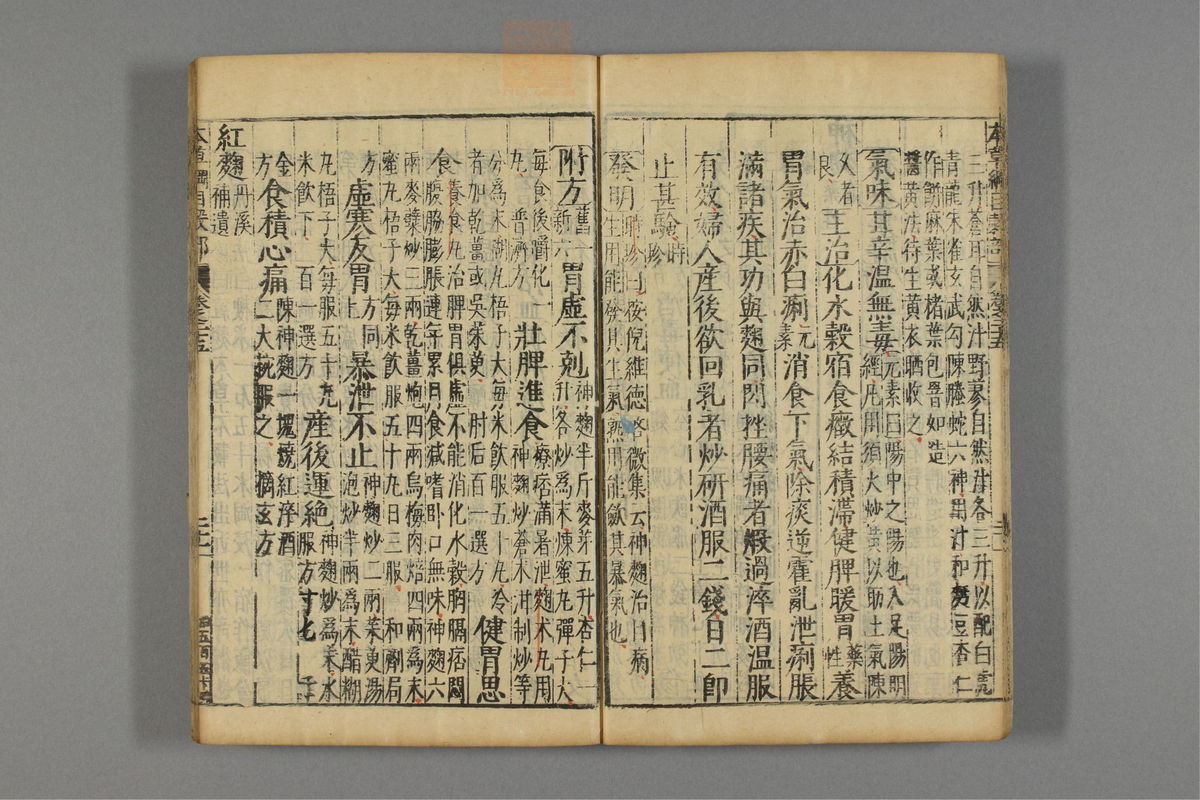 本草綱目穀部 卷之二十五
三升蒼耳自然汁野蓼自然汁各三升以配白虎
青龍朱雀玄武勾陳螣蛇六神用汁和麪豆杏仁
作餅麻葉或楮葉包罯如造
醬黃法待生黃衣晒收之
氣味甘辛溫無毒元素曰陽中之陽也入足陽明
經凡用須火炒黃以助土氣陳
久者
良 主治化水穀宿食癥結積滯健脾暖胃藥性養
胃氣治赤白痢元素消食下氣除痰逆霍亂泄痢脹
滿諸疾其功與麴同閃挫腰痛者煅過淬酒溫服
有效婦人産後欲回乳者炒研酒服二錢日二卽
止甚驗時珍
發明時珍曰按倪維德啓微集云神麴治目病
生用能發其生氣熟用能斂其暴氣也
附方舊一新六胃虛不剋神麴半斤麥芽五升杏仁一
升各炒爲末煉蜜丸彈子大
每食後嚼化一
丸 普濟方 壯脾進食療痞滿暑泄麴术丸用
神麴炒蒼术泔制炒等
分爲末糊丸梧子大每米飲服五十丸冷
者加乾薑或吳茱萸 肘后百一選方 健胃思
食養食丸治脾胃俱虛不能消化水穀胸膈痞悶
腹脇膨脹連年累月食減嗜卧口無味神麴六
兩麥糵炒三兩乾薑炮四兩烏梅肉焙四兩爲末
蜜丸梧子大每米飲服五十丸日三服 和劑局
方 虛寒反胃方同上 暴泄不止神麴炒二兩茱萸湯
泡炒半兩爲末醋糊
丸梧子大每服五十丸
米飲下 百一選方 産後運絶神麴炒爲末水
服方寸匕 千
金
方 食積心痛陳神麴一塊燒紅淬酒
二大碗服之 摘玄方
紅麴丹溪
神遺
本草綱目穀部 卷之二十五